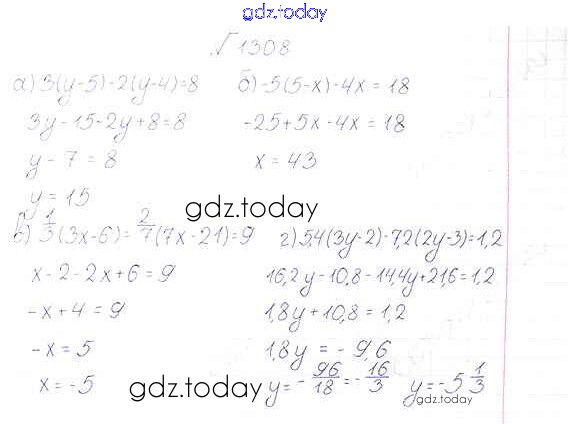 gdz.today
√ 1308
а) 3(y-5)-2(y-4)=8
3y-15-2y+8=8
y-7=8
y=15
б) -5(5-x)-4x=18
-25+5x-4x=18
x=43
gdz.today
в) 1/3(3x-6)=2/7(7x-21)=9
x-2-2x+6=9
-x+4=9
-x=5
x=-5
г) 5,4(3y-2)-7,2(2y-3)=1,2
16,2y-10,8-14,4y+21,6=1,2
1,8y+10,8=1,2
1,8y=-9,6
y=-96/18=-16/3 y=-5 1/3
gdz.today
gdz.today